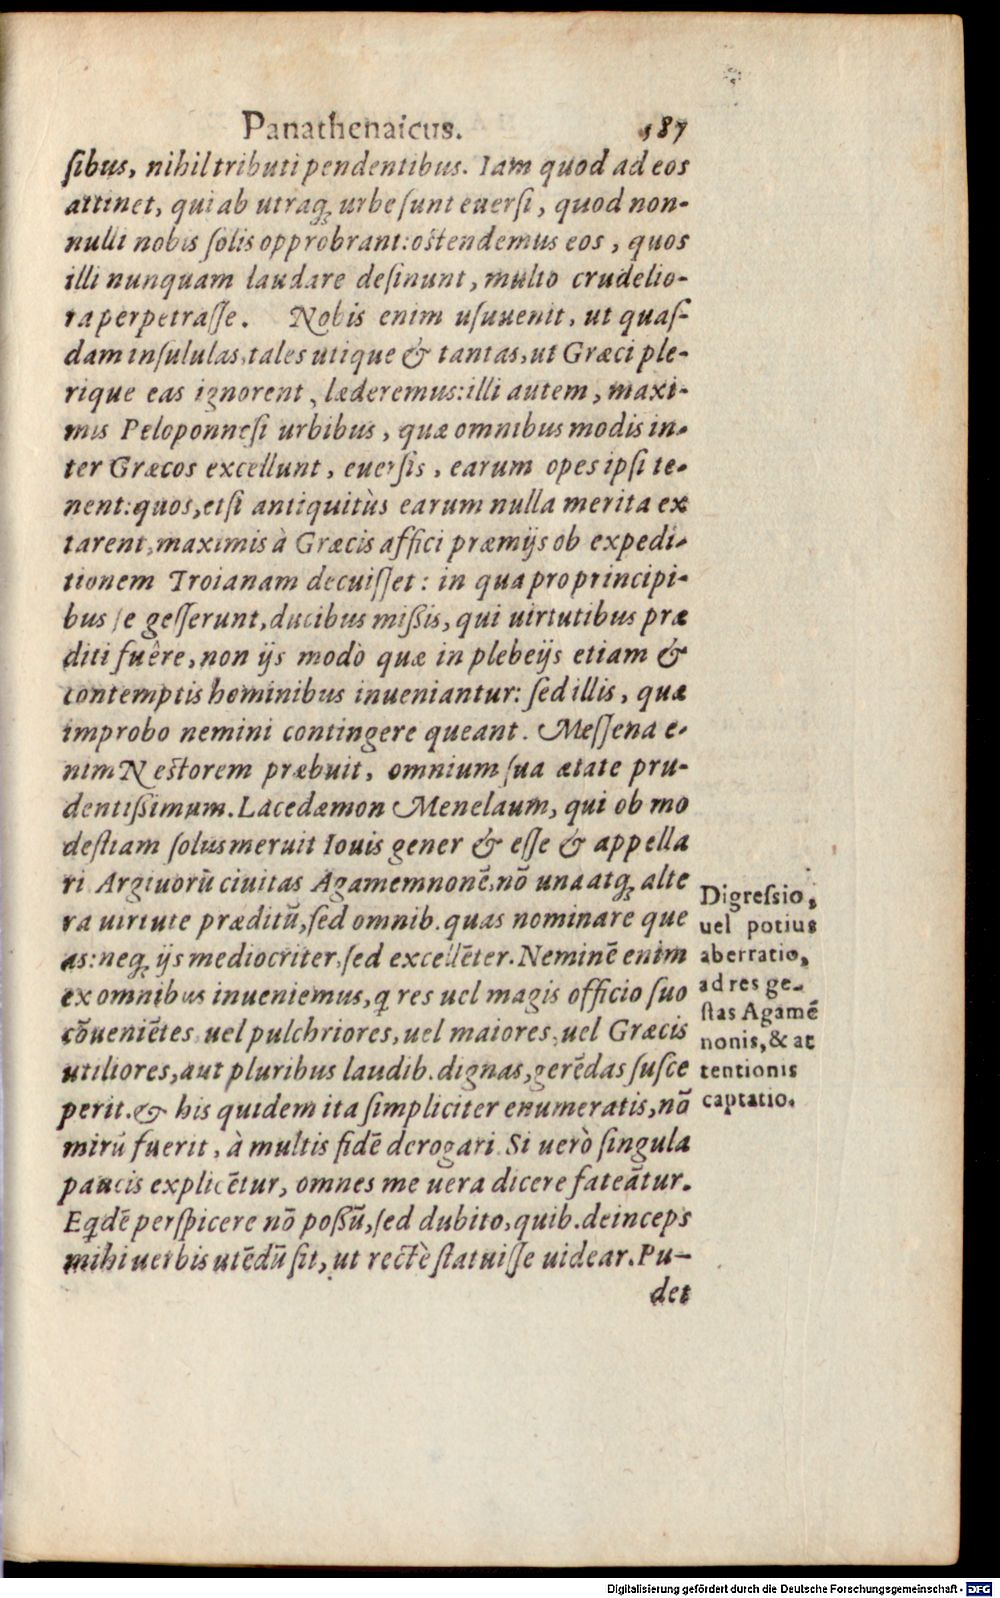 Panathenaicus. 187
ſibus, nihil tributi pendentibus. Iam quod ad eos
attinet, qui ab utraq; urbe ſunt euerſi, quod non-
nulli nobis ſolis opprobrant: oſtendemus eos, quos
illi nunquam laudare deſinunt, multo crudelio-
ra perpetraſſe. Nobis enim uſuuenit, ut quaſ-
dam inſululas, tales utique & tantas, ut Græci ple-
rique eas ignorent, læderemus: illi autem, maxi-
mis Peloponneſi urbibus, quæ omnibus modis in-
ter Græcos excellunt, euerſis, earum opes ipſi te-
nent: quos, etſi antiquitùs earum nulla merita ex
tarent, maximis à Græcis affici præmijs ob expedi-
tionem Troianam decuiſſet: in qua pro principi-
bus ſe geſſerunt, ducibus mißis, qui uirtutibus præ
diti fuêre, non ijs modò quæ in plebeijs etiam &
contemptis hominibus inueniantur: ſed illis, quæ
improbo nemini contingere queant. Meſſena e-
nim Neſtorem præbuit, omnium ſua ætate pru-
dentißimum. Lacedæmon Menelaum, qui ob mo
deſtiam ſolus meruit Iouis gener & eſſe & appella
ri Argiuorū ciuitas Agamemnonē, nō una atq; alte
ra uirtute præditū, ſed omnib. quas nominare que
as: neq; ijs mediocriter, ſed excellēter. Neminē enim
ex omnibus inueniemus, q res uel magis officio ſuo
cōueniētes, uel pulchriores, uel maiores, uel Græcis
utiliores, aut pluribus laudib. dignas, gerēdas ſuſce
perit. & his quidem ita ſimpliciter enumeratis, nō
mirū fuerit, à multis fidē derogari. Si uerò ſingula
paucis explicētur, omnes me uera dicere fateātur.
Eqdē perſpicere nō poßū, ſed dubito, quib. deinceps
mihi uerbis utēdū ſit, ut rectè ſtatuiſſe uidear. Pu-
det
Digreſsio,
uel potius
aberratio,
ad res ge-
ſtas Agamē
nonis, & at
tentionis
captatio.
Digitalisierung gefördert durch die Deutsche Forschungsgemeinschaft - DFG